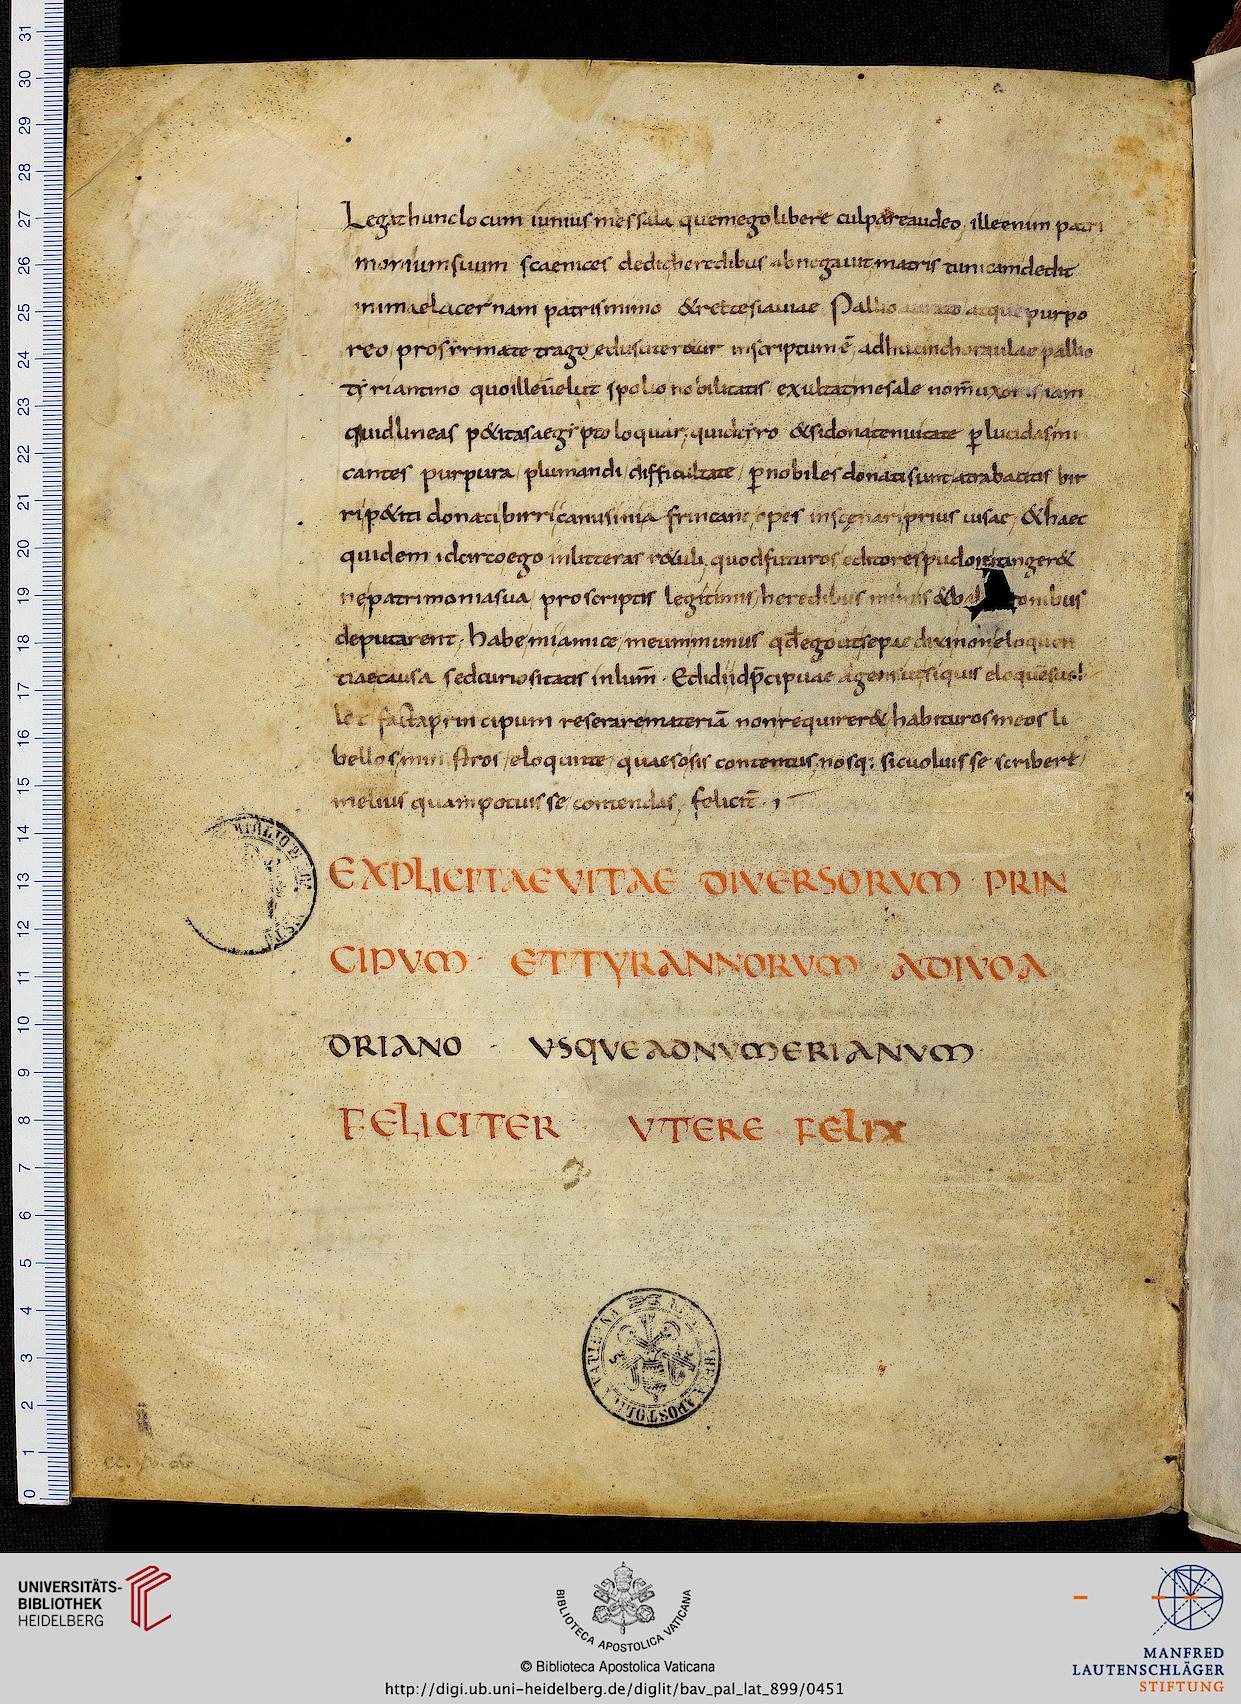 Legathunclocum iuniusmessala quemegolibere culpareaudeo, illeenim patri
moniumsuum scaenices dedit heredibus abnegauit matris tunicamdedit
mimaelacernam patrismimo &rectesiauiae Pallio aurato atquepurpo
reo pros
inscriptumē adhucinchoraulae pallio
tyriantino quoilleuelut spolio nobilitatis exultat mesale nom̄ uxoris iam
quidlineas p&itasaegypto loquar, quid
&sidonatenuitate plucidasmi
cantes purpura plumandi difficultate pnobiles donatisunt atrabatis bir
rip&iti donatibirri canusini
opes inscenariprius uisae, &haec
quidem idcircoego inlitteras r&uli quodfuturos editorespudor tanger&
nepatrimoniasua proscriptis legitimis heredibus mimis &bal onibus
deputarent. habe mi amice meummunus qdego utsepaedixi non eloquen
tiaecausa sedcuriositatis inlum̄. Edidi idp̄cipuae agens utsiquis eloquēsuel
let factaprincipum reseraremateriā nonrequirer& habiturosmeos li
bellosministros eloquii te quaesosis contentus, nosq; sicuoluisse scribere
melius quampotuisse contendas, felicit̄.
EXPLICITAE VITAE DIVERSORVM PRIN
CIPVM · ET TYRANNORVM · ADIVOA
DRIANO · VSQVEADNVMERIANVM
FELICITER · VTERE FELIX
31
30
29
28
27
26
25
24
23
22
21
20
19
18
17
16
15
14
13
12
11
10
9
8
7
6
5
4
3
2
1
0
UNIVERSITÄTS-
BIBLIOTHEK
HEIDELBERG
BIBLIOTECA APOSTOLICA VATICANA
© Biblioteca Apostolica Vaticana
http://digi.ub.uni-heidelberg.de/diglit/bav_pal_lat_899/0451
MANFRED
LAUTENSCHLÄGER
STIFTUNG